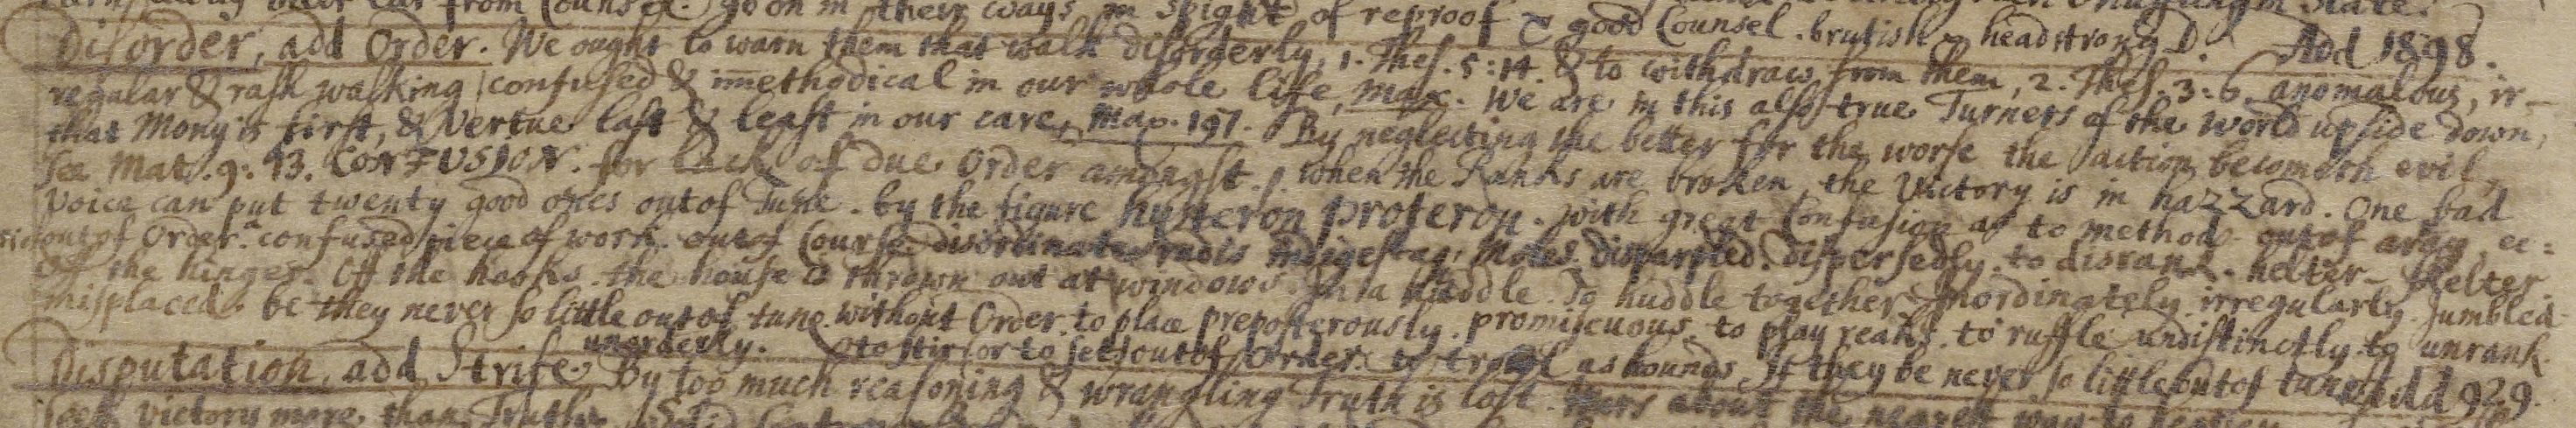 their ear from Counsel. go on in their ways in spight of reproof & good Counsel. brutish headstrong D.
Disorder, add Order. We ought to warn them that walk disorderly, 1. Thes. 5:14. & to withdraw from them, 2. Thes. 3:6. anomalous, ir- Add 1898.
regular & rash walking confused & immethodical in our whole life, Max. We are in this also true Turners of the world upside down,
that Mony is first, & Vertue last & least in our care, Max. 197. By neglecting the better for the worse the action becometh evil,
See Mat. 9:13. CONFUSION. for lack of due Order amongst. when the Ranks are broken, the Victory is in hazzard. One bad
Voice can put twenty good ones out of Tune. by the figure hysteron proteron. with great Confusion as to method out of aray, ec=
out of Order. a confused piece of work. out of Course disordinate rudis indigestaq; Moles. disparpled. dispersedly. to disrank. helter-skelter
off the hinges. Off the hooks. the house is thrown out at windows. In a huddle. To huddle together. Inordinately. irregularly. Jumbled
misplaced. be they never so little out of tune. without Order. to place preposterously. promiscuous. to play reaks. to ruffle undistinctly. to unrank.
unorderly. to stir (or to set) out of Order. as hounds. If they be never so little out of tune Add 929.
Disputation, add Strife. By too much reasoning & wrangling Truth is lost. about the nearest way to heaven
seek Victory more than Truth.